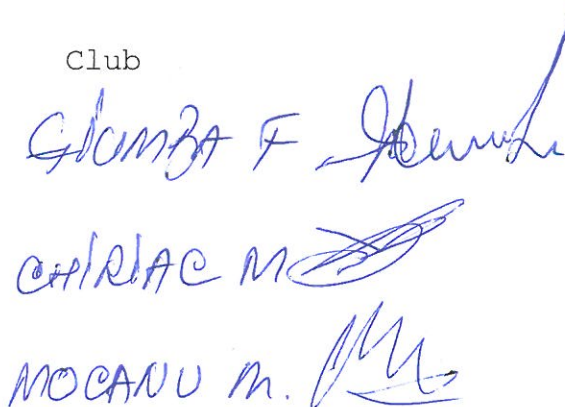 Club
GIUMBA F.
CHIRIAC M
MOCANU M.